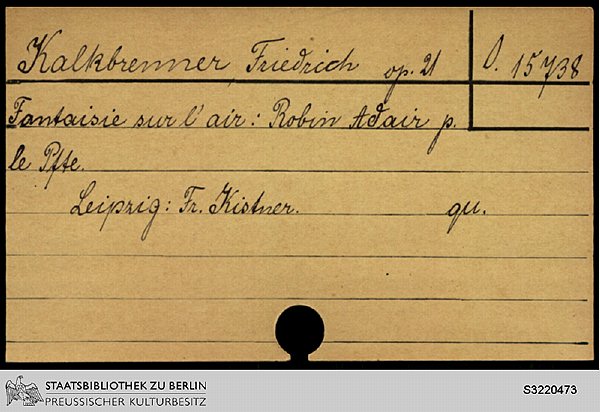 Kalkbrenner, Friedrich op. 21 O. 15738
Fantaisie sur l'air: Robin Adair p.
le Pfte.
Leipzig: Fr. Kistner. qu.
STAATSBIBLIOTHEK ZU BERLIN
PREUSSISCHER KULTURBESITZ
S3220473